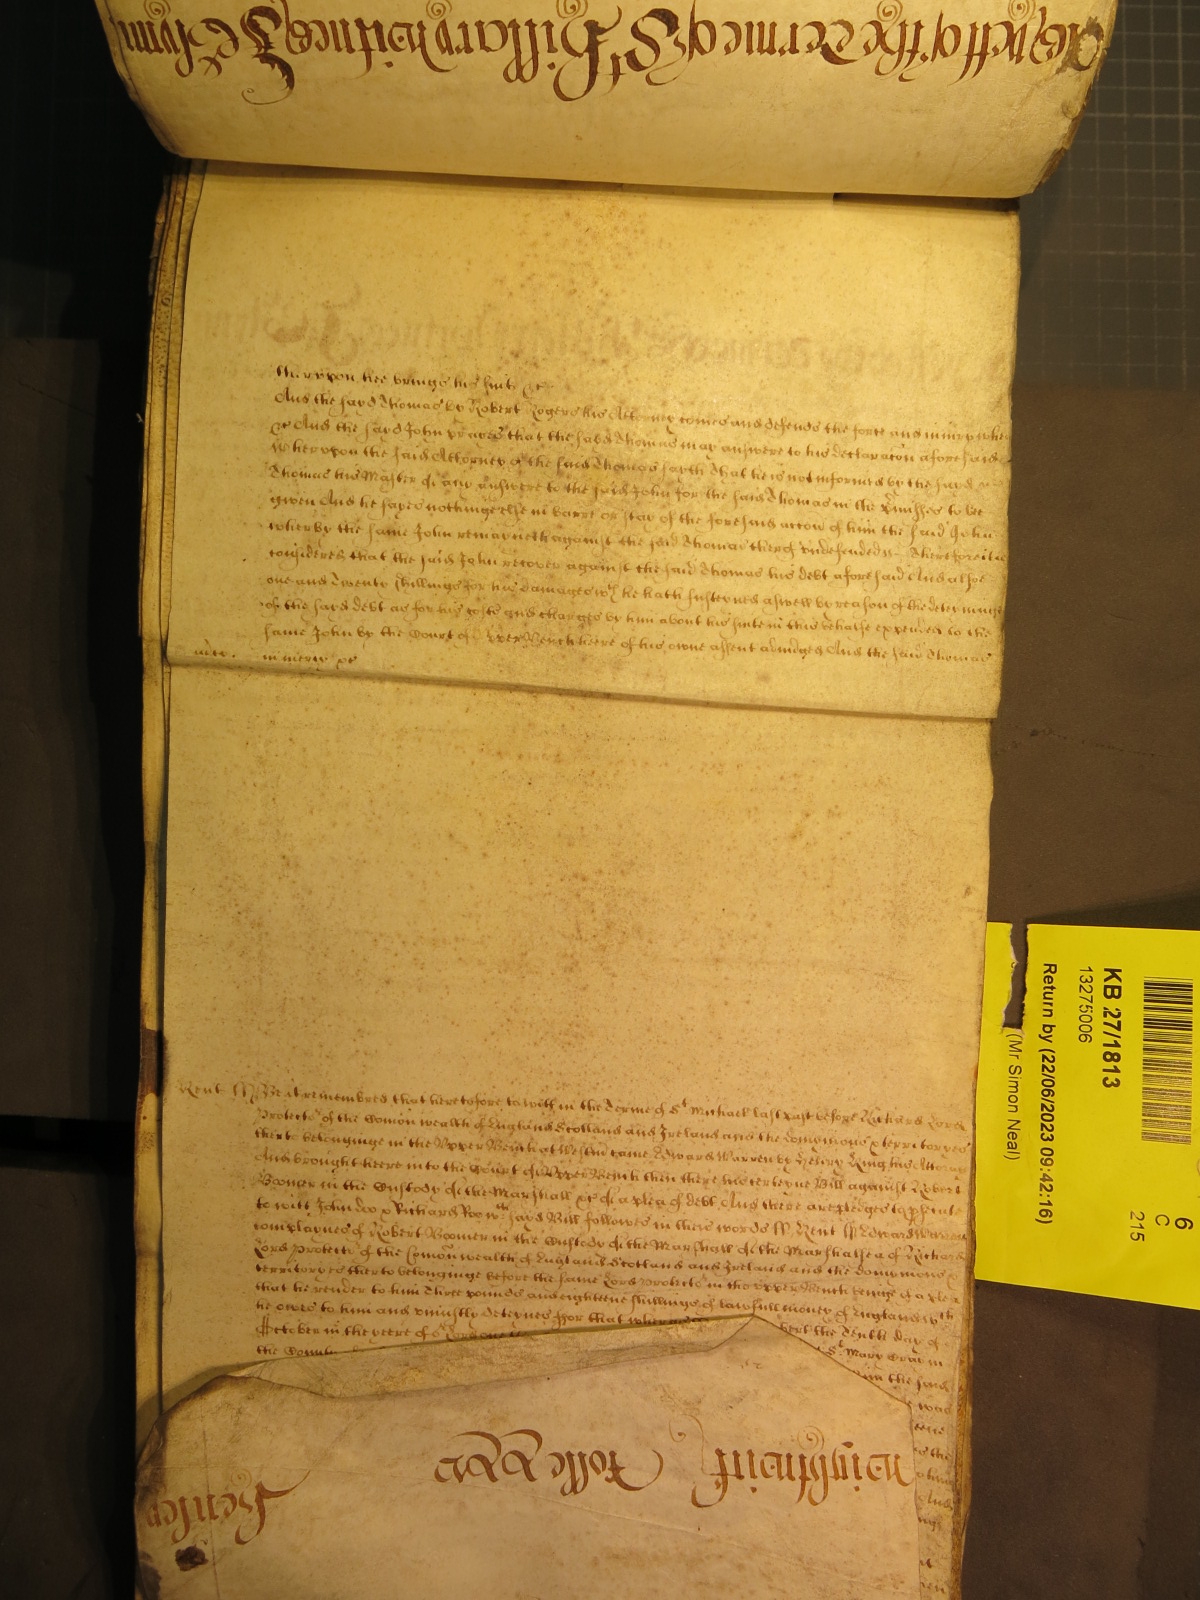 As yett of the Terme of St Hillary witnes J Glynn
Whereupon hee brings his suite &c
And the sayd Thomas by Robert Rogers his Attorney comes and defends the force and iniury when
&c And the sayd John prayes that the said Thomas may answere to his declaracon aforesaid
Whereupon the said Attorney of the said Thomas sayth that he is not informed by the sayd
Thomas his Master of any answere to the said John for the said Thomas in the premisses to be
given And he sayes nothinge else in barre or stay of the foresaid accon of him the said John
whereby the same John remayneth against the said Thomas therof undefended Therefore it is
considered that the said John recover against the said Thomas his debt aforesaid And alsoe
one and Twenty shillings for his damages wch he hath susteyned aswell by reason of the deteyninge
of the sayd debt as for his costs and charges by him about his suite in this behalfe expended to the
same John by the Court of Upper Bench heere of his owne assent adiudged And the said Thomas
in mercy &c
Kent ss Be it remembred that heretofore to witt in the Terme of St Michael last past before Richard Lord
Protector of the Comon wealth of England Scotland and Ireland and the dominions & territoryes
therto belonginge in the Upper Bench at Westm came Edward Warren by Henry King his Attorny
And brought heere into the Court of Upper Bench then there his certeyne Bill against Robert
Boomer in the Custody of the Marshall &c of a plea of debt And there are pledges to psente
to witt John Doo & Richard Roo wch sayd Bill followes in these words ss Kent ss Edward Warren
complaynes of Robert Boomer in the Custody of the Marshall of the Marshalsea of Richard
Lord Protector of the Comonwealth of England Scotland and Ireland and the dominions &
territoryes therto belonginge before the same Lord Protector in the Upper Bench beinge of a plea
that he render to him three pounds and eighteene shillings of lawfull money of England wch
he owes to him and uniustly deteynes ffor that wheras
bert the Tenth day of
October in the yeere of
St Mary Cray in
the County
the said
was
Wightwick Rolle
Henley
KB 27/1813
13275006
Return by (22/06/2023 09:42:16)
(Mr Simon Neal)
6
C
215